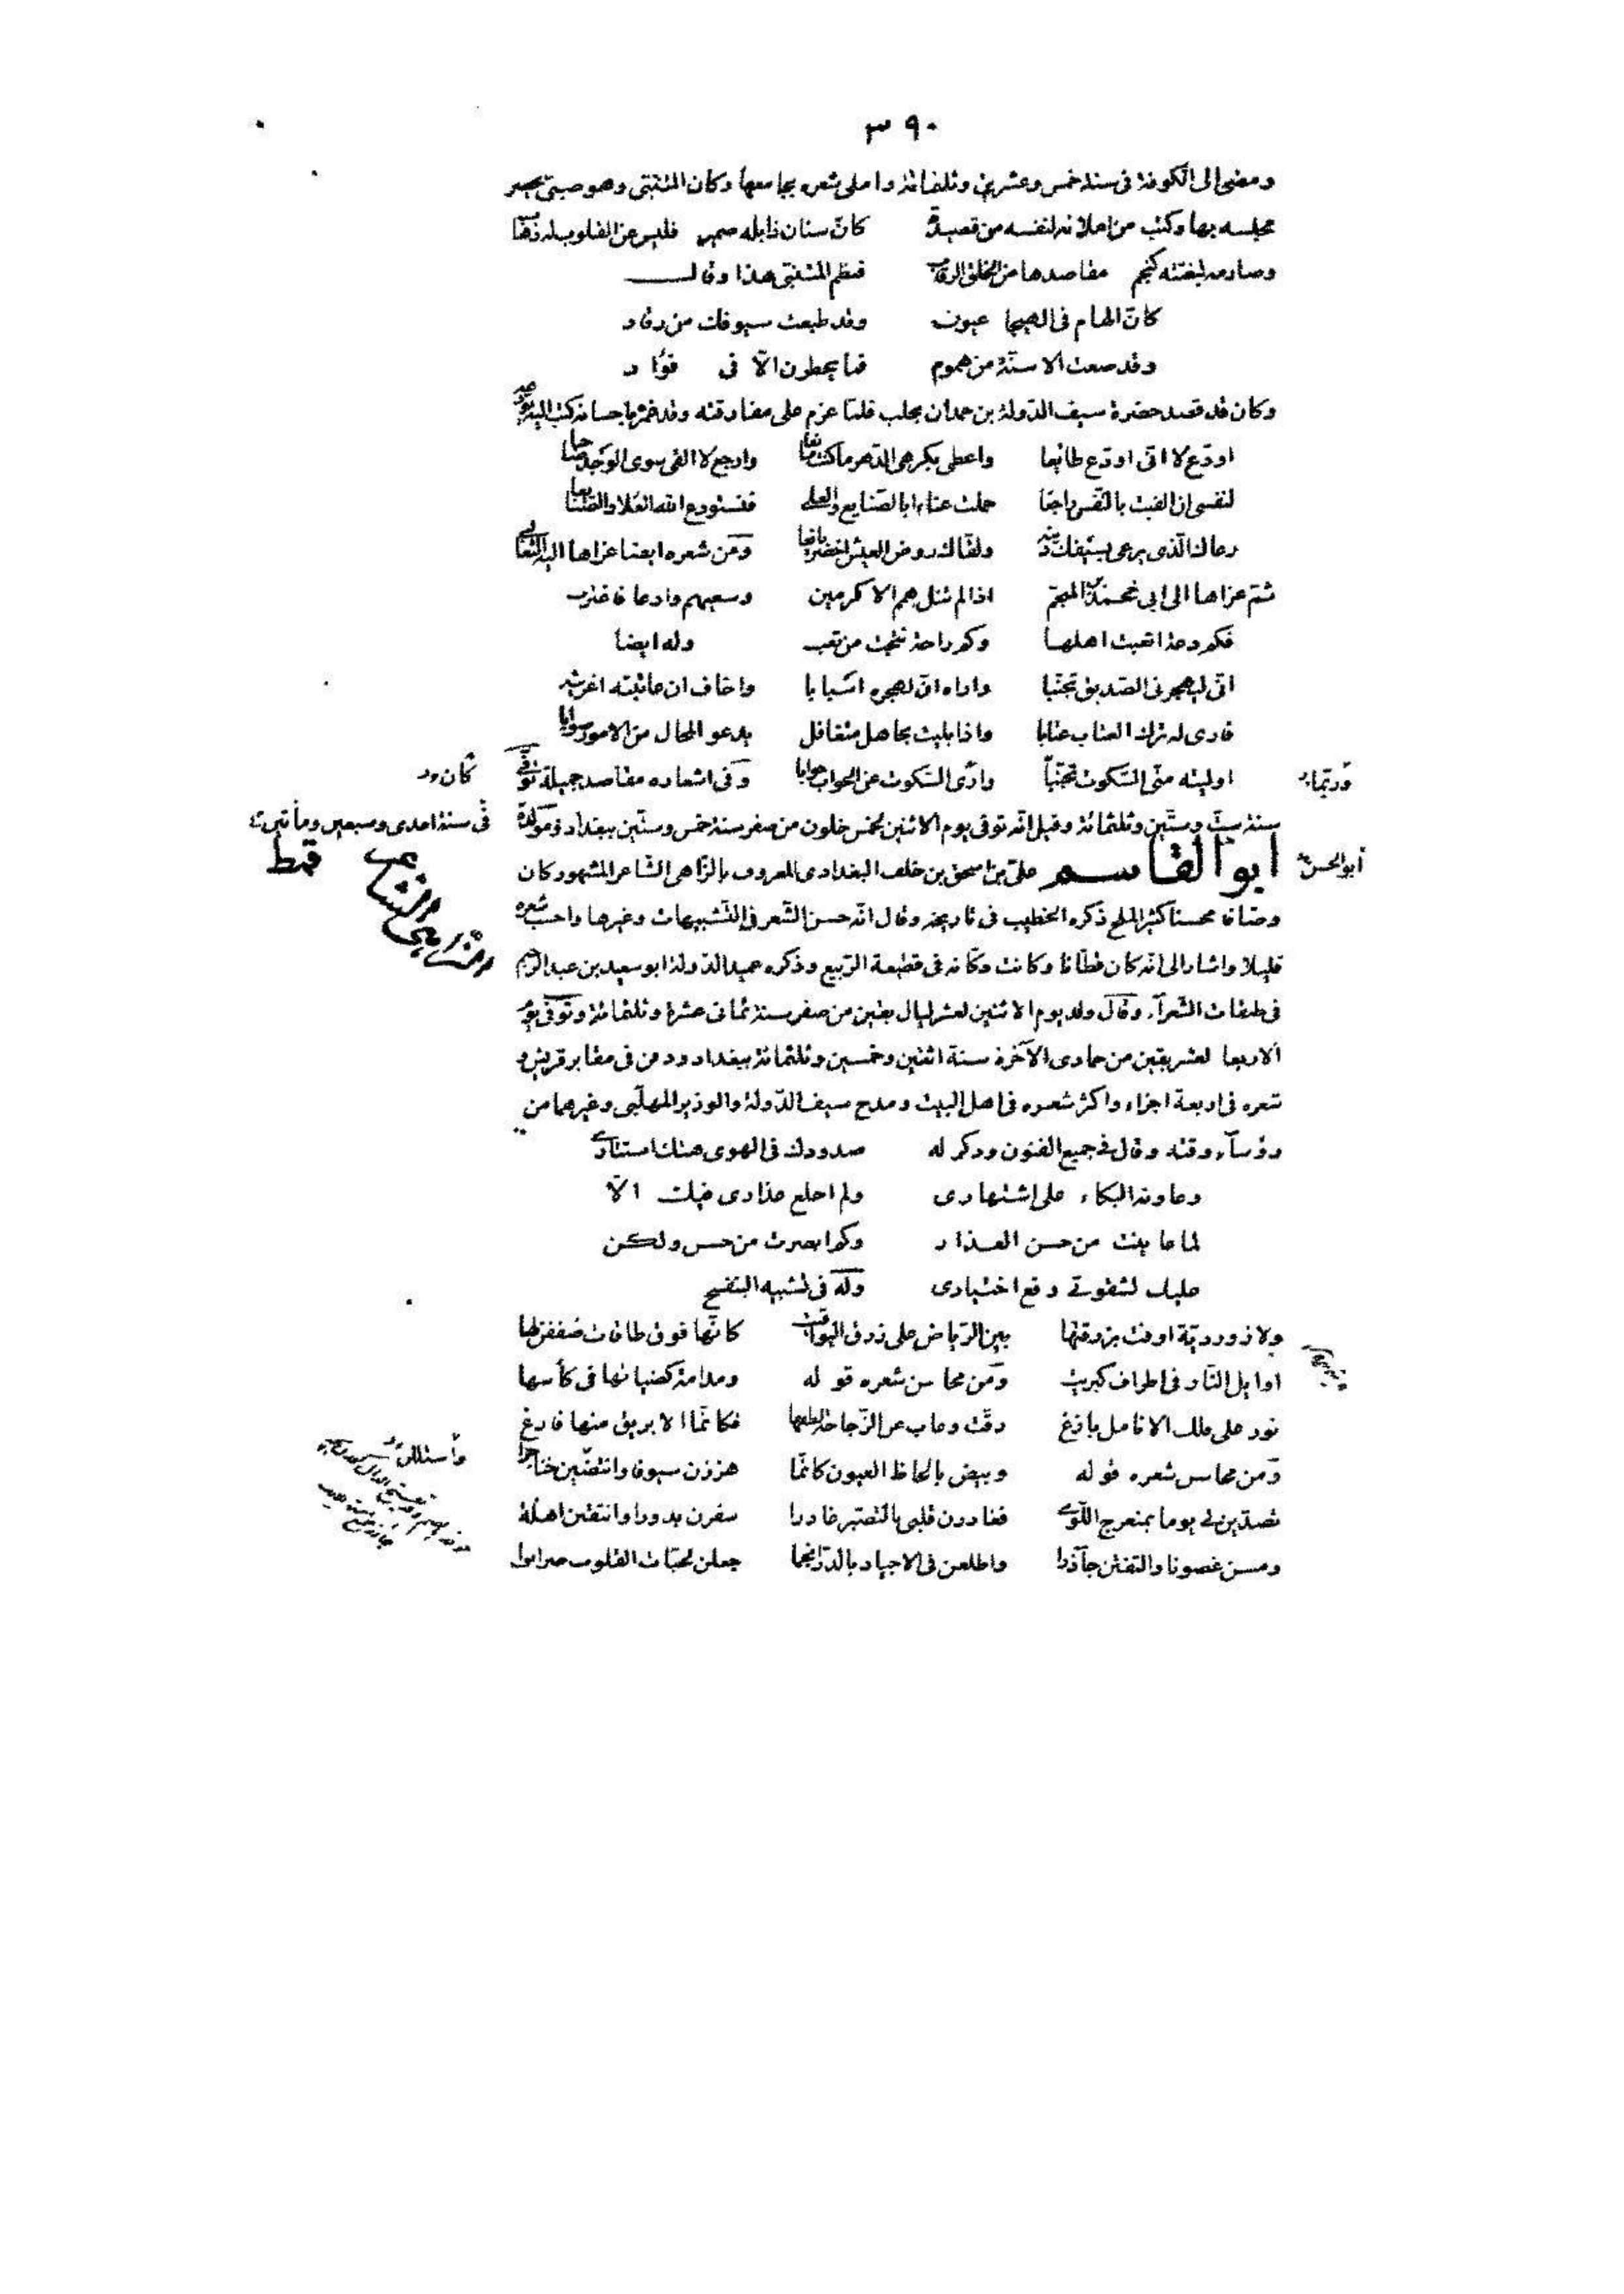 ٣٩٠
ومضى الى الكوفة فى سنة خمس وعشرين وثلثمائة واملى شعره بجامعها وكان المتنبى وهو صبى يحضر
مجلسه بها وكتب من املائه لنفسه من قصيدة كانّ سنان ذابله ضمير فليس عن القلوب له ذهاب
وصارمه لبغيته كنجم مقاصدها من الخلق الرقاب فنظم المتنبى هذا وقال
كانّ الهام فى الهيجا عيون وقد طبعت سيوفك من رقاد
وقد صغت الاسنّة من هموم فما يخطرن الّا فى فؤاد
وكان قد قصد حضرة سيف الدولة بن حمدان بحلب فلمّا عزم على مفارقته وقد غمره باحسانه كتب اليه يودعه
اودّع لا انى اودّع طائعا واعطى بكرهى الدهر ما كنت مانعا وارجع لا الفى سوى الوجد صاحبا
لنفسى ان الفيت بالنفس راجعا حملت عنا ابا الصنايع والعلى فنستودع الله العلا والصنايعا
رعاك الذى يرعى بسيفك دينه ولقّاك روض العيش اخضر يانعا ومن شعره ايضا عزاها اليه الثعالبى
ثم عزاها الى ابى محمد بن المنجم اذا لم تنل همم الاكرمين وسعيهم وادعا فاغترب
فكم دعة اتعبت اهلها وكم راحة نتجت من تعب وله ايضا
انى ليهجرنى الصديق تجنبا واراه انّ لهجره اسبابا واخاف ان عاتبته اغريته
فارى له ترك العتاب عتابا واذا بليت بجاهل متغافل يدعو المحال من الامور صوابا
وربما اوليته منّى السكوت تجنّبا وارى السكوت عن الجواب جوابا وفى اشعاره مقاصد جميلة توفى كان
سنة ستّ وستّين وثلثمائة وقيل انّه توفى يوم الاثنين لخمس خلون من صفر سنة خمس وستّين ببغداد ومولده فى سنة احدى وسبعين ومأتين
أبوالحسن أبو القاسم علىّ بن اسحق بن خلف البغدادى المعروف بالزاهى الشاعر المشهور كان الزاهى الشاعر قمط
وصّافا محسنا كثير الملح ذكره الخطيب فى تاريخه وقال انّه حسن الشعر فى التشبيهات وغيرها واحسب شعره
قليلا واشار الى انّه كان قطّانا وكانت دكّانه فى قطيعة الربيع وذكره عميد الدولة ابو سعيد بن عبد الرحيم
فى طبقات الشعرآء وقال ولد يوم الاثنين لعشر ليال بقين من صفر سنة ثمانى عشرة وثلثمائة وتوفى يوم
الاربعا لعشر بقين من جمادى الآخرة سنة اثنين وخمسين وثلثمائة ببغداد ودفن فى مقابر قريش و
شعره فى اربعة اجزاء واكثر شعره فى اهل البيت ومدح سيف الدولة والوزير المهلّبى وغيرهما من
رؤسآء وقته وقال فى جميع الفنون وذكر له صدودك فى الهوى هتك استتارى
وعاونه البكاء على اشتهارى ولم اخلع عذارى فيك الّا
لما عاينت من حسن العذار وكم ابصرت من حسن ولكن
عليك لشقوتى وقع اختيارى وله فى تشبيه البنفسج
ولازورديّة اوفت بزرقتها بين الرياض على زرق اليواقيت كانّها فوق طاقات ضعفن بها
اوايل النار فى اطراف كبريت ومن محاسن شعره قوله ومدامة كضيائها فى كأسها
نور على فلك الانامل بازغ رقّت وغاب عن الزجاجة لطفها فكانّما الابريق منها فارغ
ومن محاسن شعره قوله وبيض بالحاظ العيون كانّما هززن سيوفا وانتضين خناجرا
تصدين لى يوما بمنعرج اللوى فغادرن قلبى بالتصبّر غادرا سفرن بدورا وانتقبن اهلّة
ومسن غصونا والتفتن جآذرا واطلعن فى الاجياد بالدرّ انجما جعلن لحبّات القلوب ضرايرا